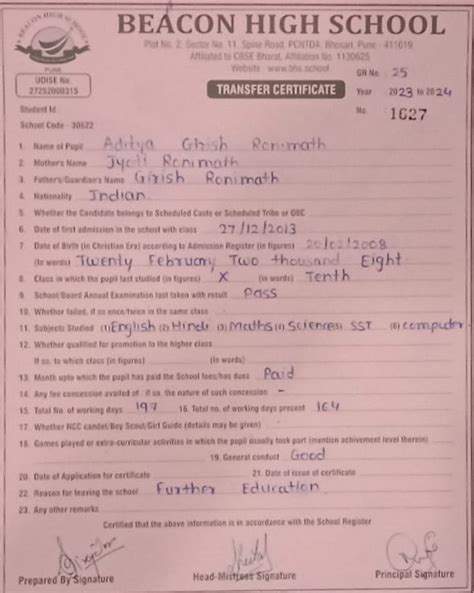 BEACON HIGH SCHOOL
BEACON HIGH SCHOOL
Plot No. 2, Sector No. 11, Spine Road, PCNTDA, Bhosari, Pune - 411019
Affiliated to CBSE Bharat, Affiliation No. 1130625
Website : www.bhs.school
PUNE
UDISE No.
27252000315
TRANSFER CERTIFICATE
GR No. 25
Year 2023 to 2024
No. 1627
Student Id
School Code - 30522
1. Name of Pupil Aditya Girish Ronimath
2. Mother's Name Jyoti Ronimath
3. Father's/Guardian's Name Girish Ronimath
4. Nationality Indian
5. Whether the Candidate belongs to Scheduled Caste or Scheduled Tribe or OBC
6. Date of first admission in the school with class 27/12/2013
7. Date of Birth (in Christian Era) according to Admission Register (in figures) 20/02/2008
(in words) Twenty February Two thousand Eight
8. Class in which the pupil last studied (in figures) X (in words) Tenth
9. School/Board Annual Examination last taken with result Pass
10. Whether failed, if so once/twice in the same class
11. Subjects Studied (1) English (2) Hindi (3) Maths (4) Science (5) SST (6) computer
12. Whether qualified for promotion to the higher class
If so, to which class (in figures) (in words)
13. Month upto which the pupil has paid the School fees/has dues Paid
14. Any fee concession availed of if so, the nature of such concession -
15. Total No. of working days 197 16. Total no. of working days present 164
17. Whether NCC candet/Boy Scout/Girl Guide (details may be given)
18. Games played or extra-curricular activities in which the pupil usually took part (mention achivement level therein)
19. General conduct Good
20. Date of Application for certificate 21. Date of issue of certificate
22. Reason for leaving the school Further Education
23. Any other remarks
Certified that the above information is in accordance with the School Register
Prepared By Signature Head-Mistress Signature Principal Signature